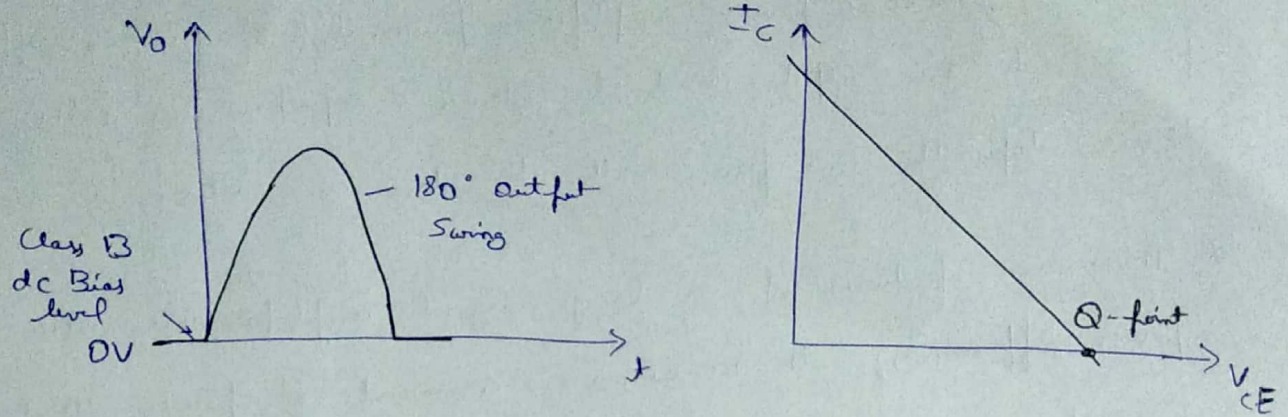 Vo
180° output
Swing
Class B
dc Bias
level
0V
t
Ic
Q-point
VCE